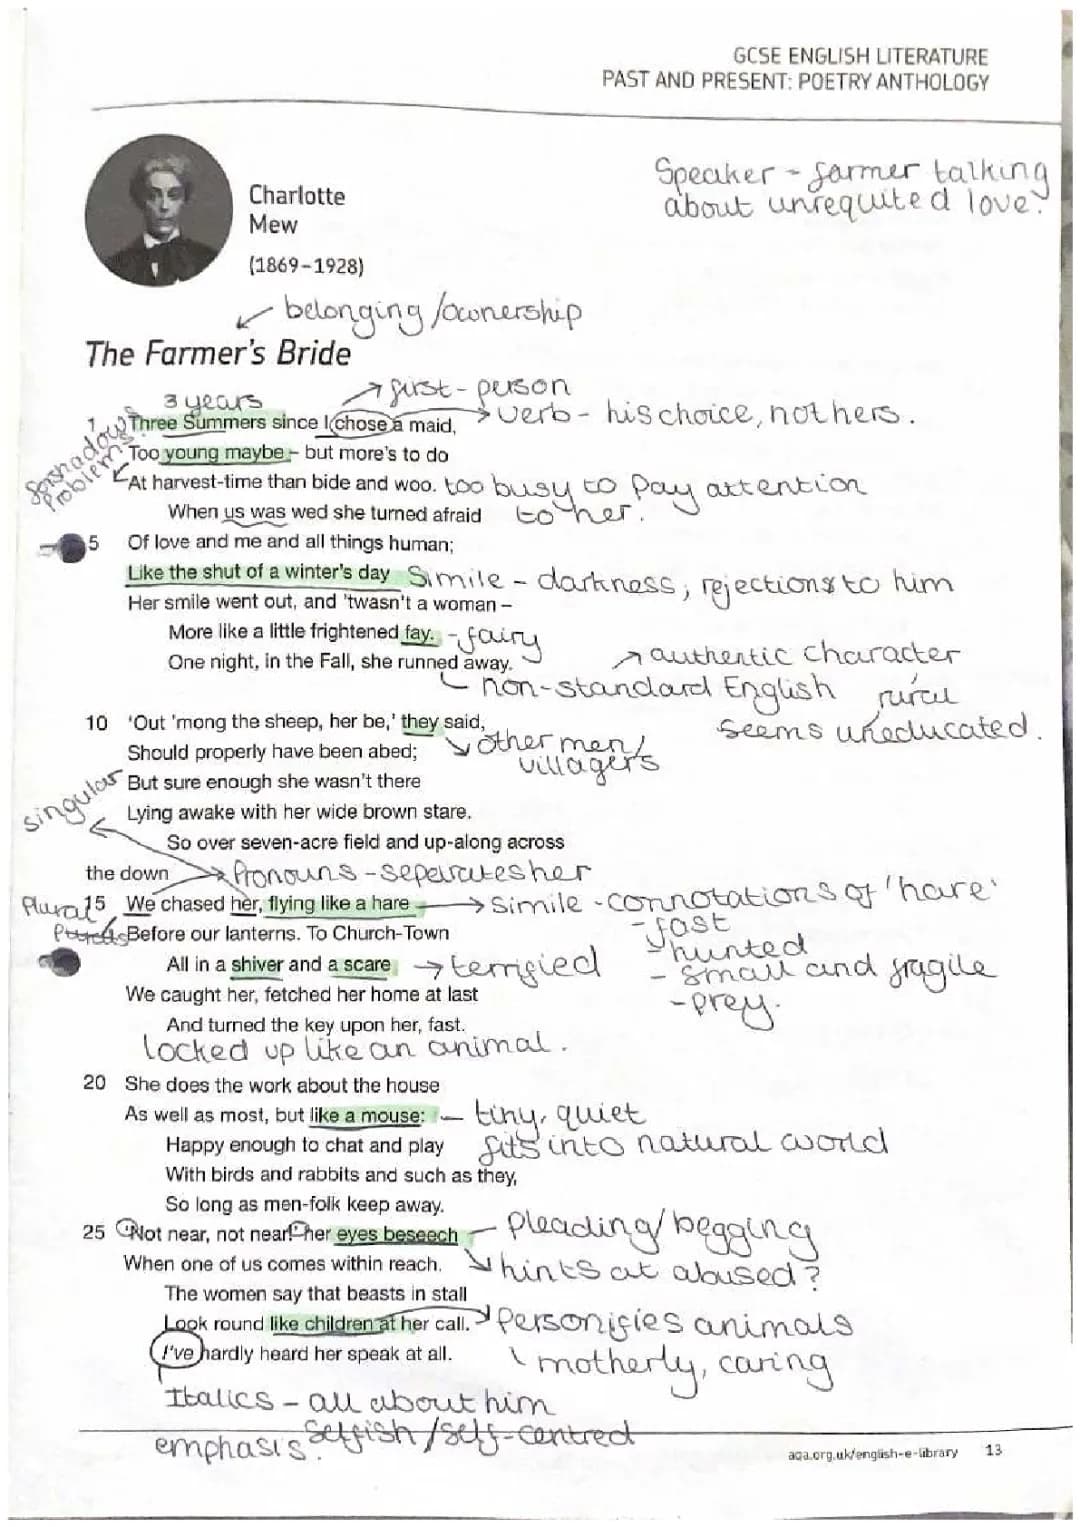 GCSE ENGLISH LITERATURE
PAST AND PRESENT: POETRY ANTHOLOGY
Speaker - farmer talking
about unrequited love.
Charlotte
Mew
(1869–1928)
belonging/ownership
The Farmer's Bride
3 years
first-person
1 Three Summers since I chose a maid,
verb - his choice, not hers.
Too young maybe – but more's to do
forshadows
problems
At harvest-time than bide and woo. too busy to pay attention
to her.
When us was wed she turned afraid
5 Of love and me and all things human;
Like the shut of a winter's day Simile - darkness, rejections to him
Her smile went out, and 'twasn't a woman –
More like a little frightened fay. - fairy
One night, in the Fall, she runned away.
authentic character
non-standard English rural
seems uneducated.
10 'Out 'mong the sheep, her be,' they said,
other men/
villagers
Should properly have been abed;
singular
But sure enough she wasn't there
Lying awake with her wide brown stare.
So over seven-acre field and up-along across
the down
Pronouns - seperates her
Plural
15 We chased her, flying like a hare
Simile - connotations of 'hare'
- fast
- hunted
- small and fragile
- prey.
Before our lanterns. To Church-Town
All in a shiver and a scare → terrified
We caught her, fetched her home at last
And turned the key upon her, fast.
locked up like an animal.
20 She does the work about the house
As well as most, but like a mouse: - tiny, quiet
Happy enough to chat and play fits into natural world
With birds and rabbits and such as they,
So long as men-folk keep away.
25 'Not near, not near!' her eyes beseech - pleading/begging
When one of us comes within reach. hints at abused?
The women say that beasts in stall
Look round like children at her call. Personifies animals
I've hardly heard her speak at all. motherly, caring
Italics - all about him
emphasis. selfish/self-centred
aqa.org.uk/english-e-library 13